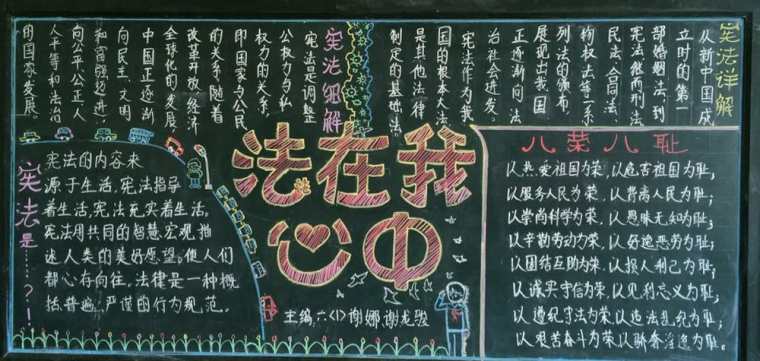 宪法详解
从新中国成
立时的第一
部婚姻法,到
宪法继而刑法
民法合同法,
物权法等一系
列法的颁布,
展现出我国
正逐渐向法
治社会进发。
宪法作为我
国的根本大法
是其他法律
制定的基础法
宪法细解
宪法是调整
公权力与私
权力的关系,
即国家与公民
的关系,随着
改革开放,经济
全球化的发展
中国正逐渐
向民主,文明
和富强迈进;
向公平,公正人
人平等和法治
的国家发展。
法在我
心中
主编:六〈1〉谢娜 谢龙骏
宪法是……?!
宪法的内容来
源于生活,宪法指导
着生活,宪法充实着生活。
宪法用共同的智慧,宏观描
述人类的美好愿望。使人们
都心存向往,法律是一种概
括,普遍,严谨的行为规范。
八荣八耻
以热爱祖国为荣,以危害祖国为耻;
以服务人民为荣,以背离人民为耻;
以崇尚科学为荣,以愚昧无知为耻;
以辛勤劳动为荣,以好逸恶劳为耻;
以团结互助为荣,以损人利己为耻;
以诚实守信为荣,以见利忘义为耻;
以遵纪守法为荣,以违法乱纪为耻;
以艰苦奋斗为荣,以骄奢淫逸为耻。